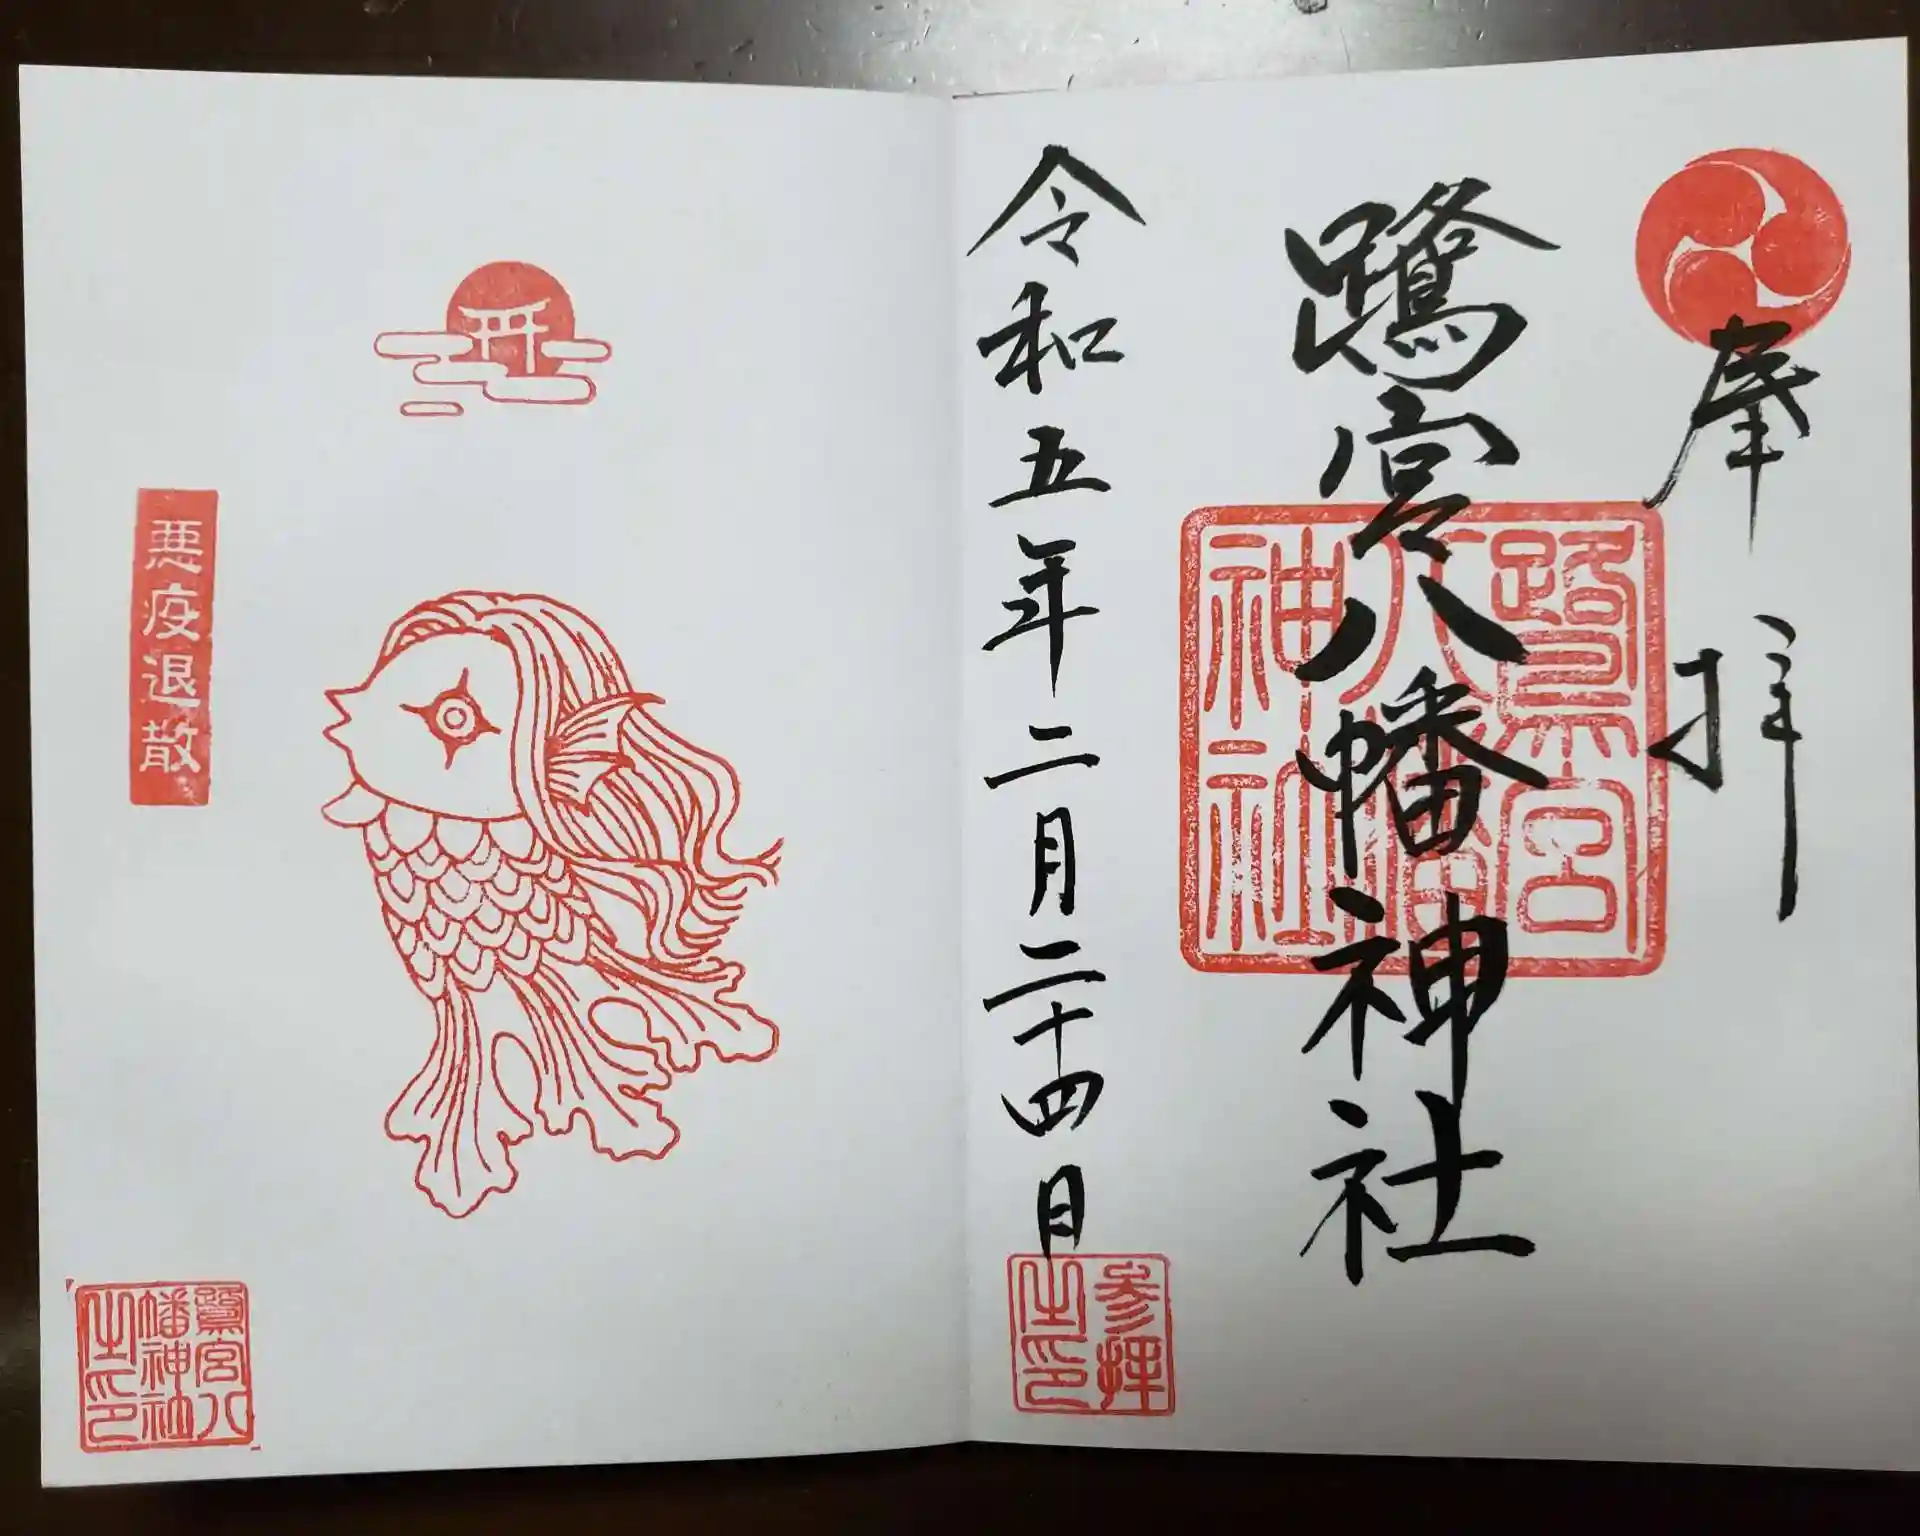 奉拝
鷺宮八幡神社
鷺宮
八幡
神社
令和五年二月二十四日
参拝
之印
悪疫退散
鷺宮八
幡神社
之印